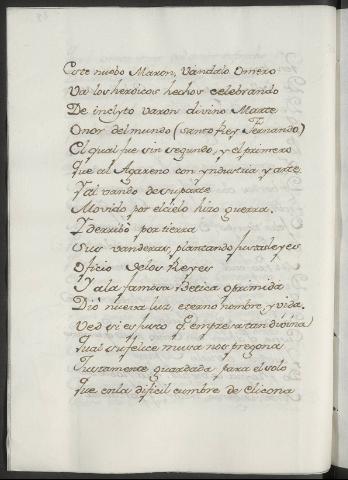 Este nuebo Maron, Vandalo Omero
Va los heroicos hechos celebrando
De inclyto varon divino Marte
Onor del mundo (santo Rey Fernando)
El qual fue sin segundo, y el primero
Que al Agareno con yndustria y arte
Y al vando de su parte
Movido por el cielo hizo guerra.
Y derribò por tierra
Sus vanderas, plantando justas leyes
Oficio de los Reyes
Y a la famosa betica oprimida
Diò nueva luz eterno nombre, y vida.
Ved si es justo q. empresa tan divina
Qual su felice musa nos pregona
Justamente guardada para el solo
Que en la dificil cumbre de Elicona